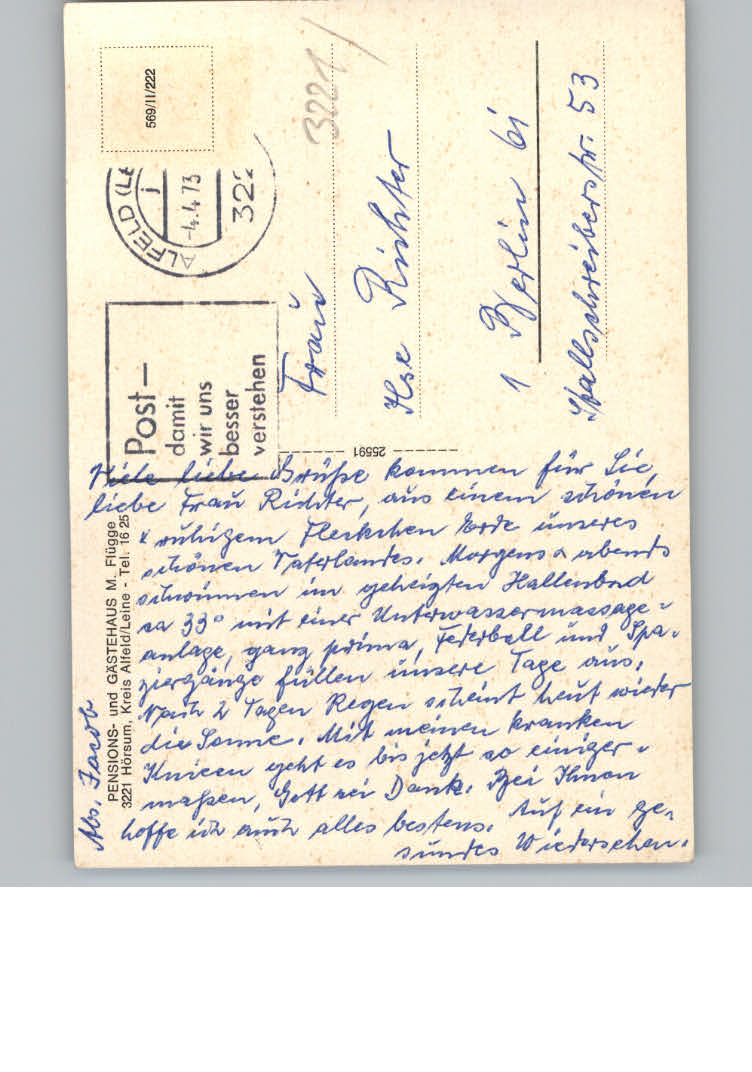 569/II/222
3221
ALFELD (LE
j
-4.4.73
322
Post –
damit
wir uns
besser
verstehen
Frau
Ilse Richter
1 Berlin 61
Stallschreiberstr. 53
25591
PENSIONS- und GÄSTEHAUS M. Flügge
3221 Hörsum, Kreis Alfeld/Leine - Tel. 16 25
Abs. Jacob
Viele liebe Grüße kommen für Sie,
liebe Frau Richter, aus einem schönen
ruhigem Fleckchen Erde unseres
schönen Vaterlandes. Morgens & abends
schwimmen im geheizten Hallenbad
ca 33° mit einer Unterwassermassage-
anlage, ganz prima, Federball und Spa-
ziergänge füllen unsere Tage aus.
Nach 2 Tagen Regen scheint heut wieder
die Sonne. Mit meinen kranken
Knieen geht es bis jetzt so einiger-
maßen, Gott sei Dank. Bei Ihnen
hoffe ich auch alles bestens. Auf ein ge-
sundes Wiedersehen.